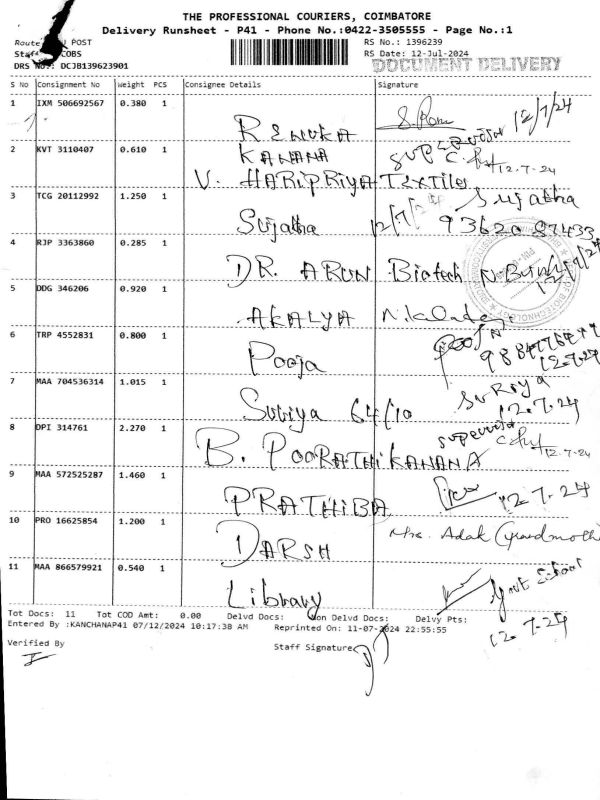 THE PROFESSIONAL COURIERS, COIMBATORE
Delivery Runsheet - P41 - Phone No.:0422-3505555 - Page No.:1
Route POST
RS No.: 1396239
COBS
RS Date: 12-Jul-2024
DRS No.: DCJB139623901
DOCUMENT DELIVERY
S No Consignment No Weight PCS Consignee Details Signature
1 IXM 506692567 0.380 1 RENUKA S. Rani 12/7/24
2 KVT 3110407 0.610 1 KANANA supervisor 12-7-24
V. HARIPRIYA TEXTILES
3 TCG 20112992 1.250 1 Sujatha 12/7/24 Sujatha
93620 87433
4 RJP 3363860 0.285 1 DR. ARUN Biotech
5 DDG 346206 0.920 1 AKALYA
6 TRP 4552831 0.800 1 Pooja 12.7.24
7 MAA 704536314 1.015 1 Suriya 64/10 SURiya
12.7.24
8 DPI 314761 2.270 1 B. POORATHIKANANA supervisor 12.7.24
9 MAA 572525287 1.460 1 PRATHIBA 12.7.24
10 PRO 16625854 1.200 1 DARSH Mrs. Adak (grandmoth
11 MAA 866579921 0.540 1 Library Govt School
12.7.24
Tot Docs: 11 Tot COD Amt: 0.00 Delvd Docs: Non Delvd Docs: Delvy Pts:
Entered By :KANCHANAP41 07/12/2024 10:17:38 AM Reprinted On: 11-07-2024 22:55:55
Verified By
Staff Signature